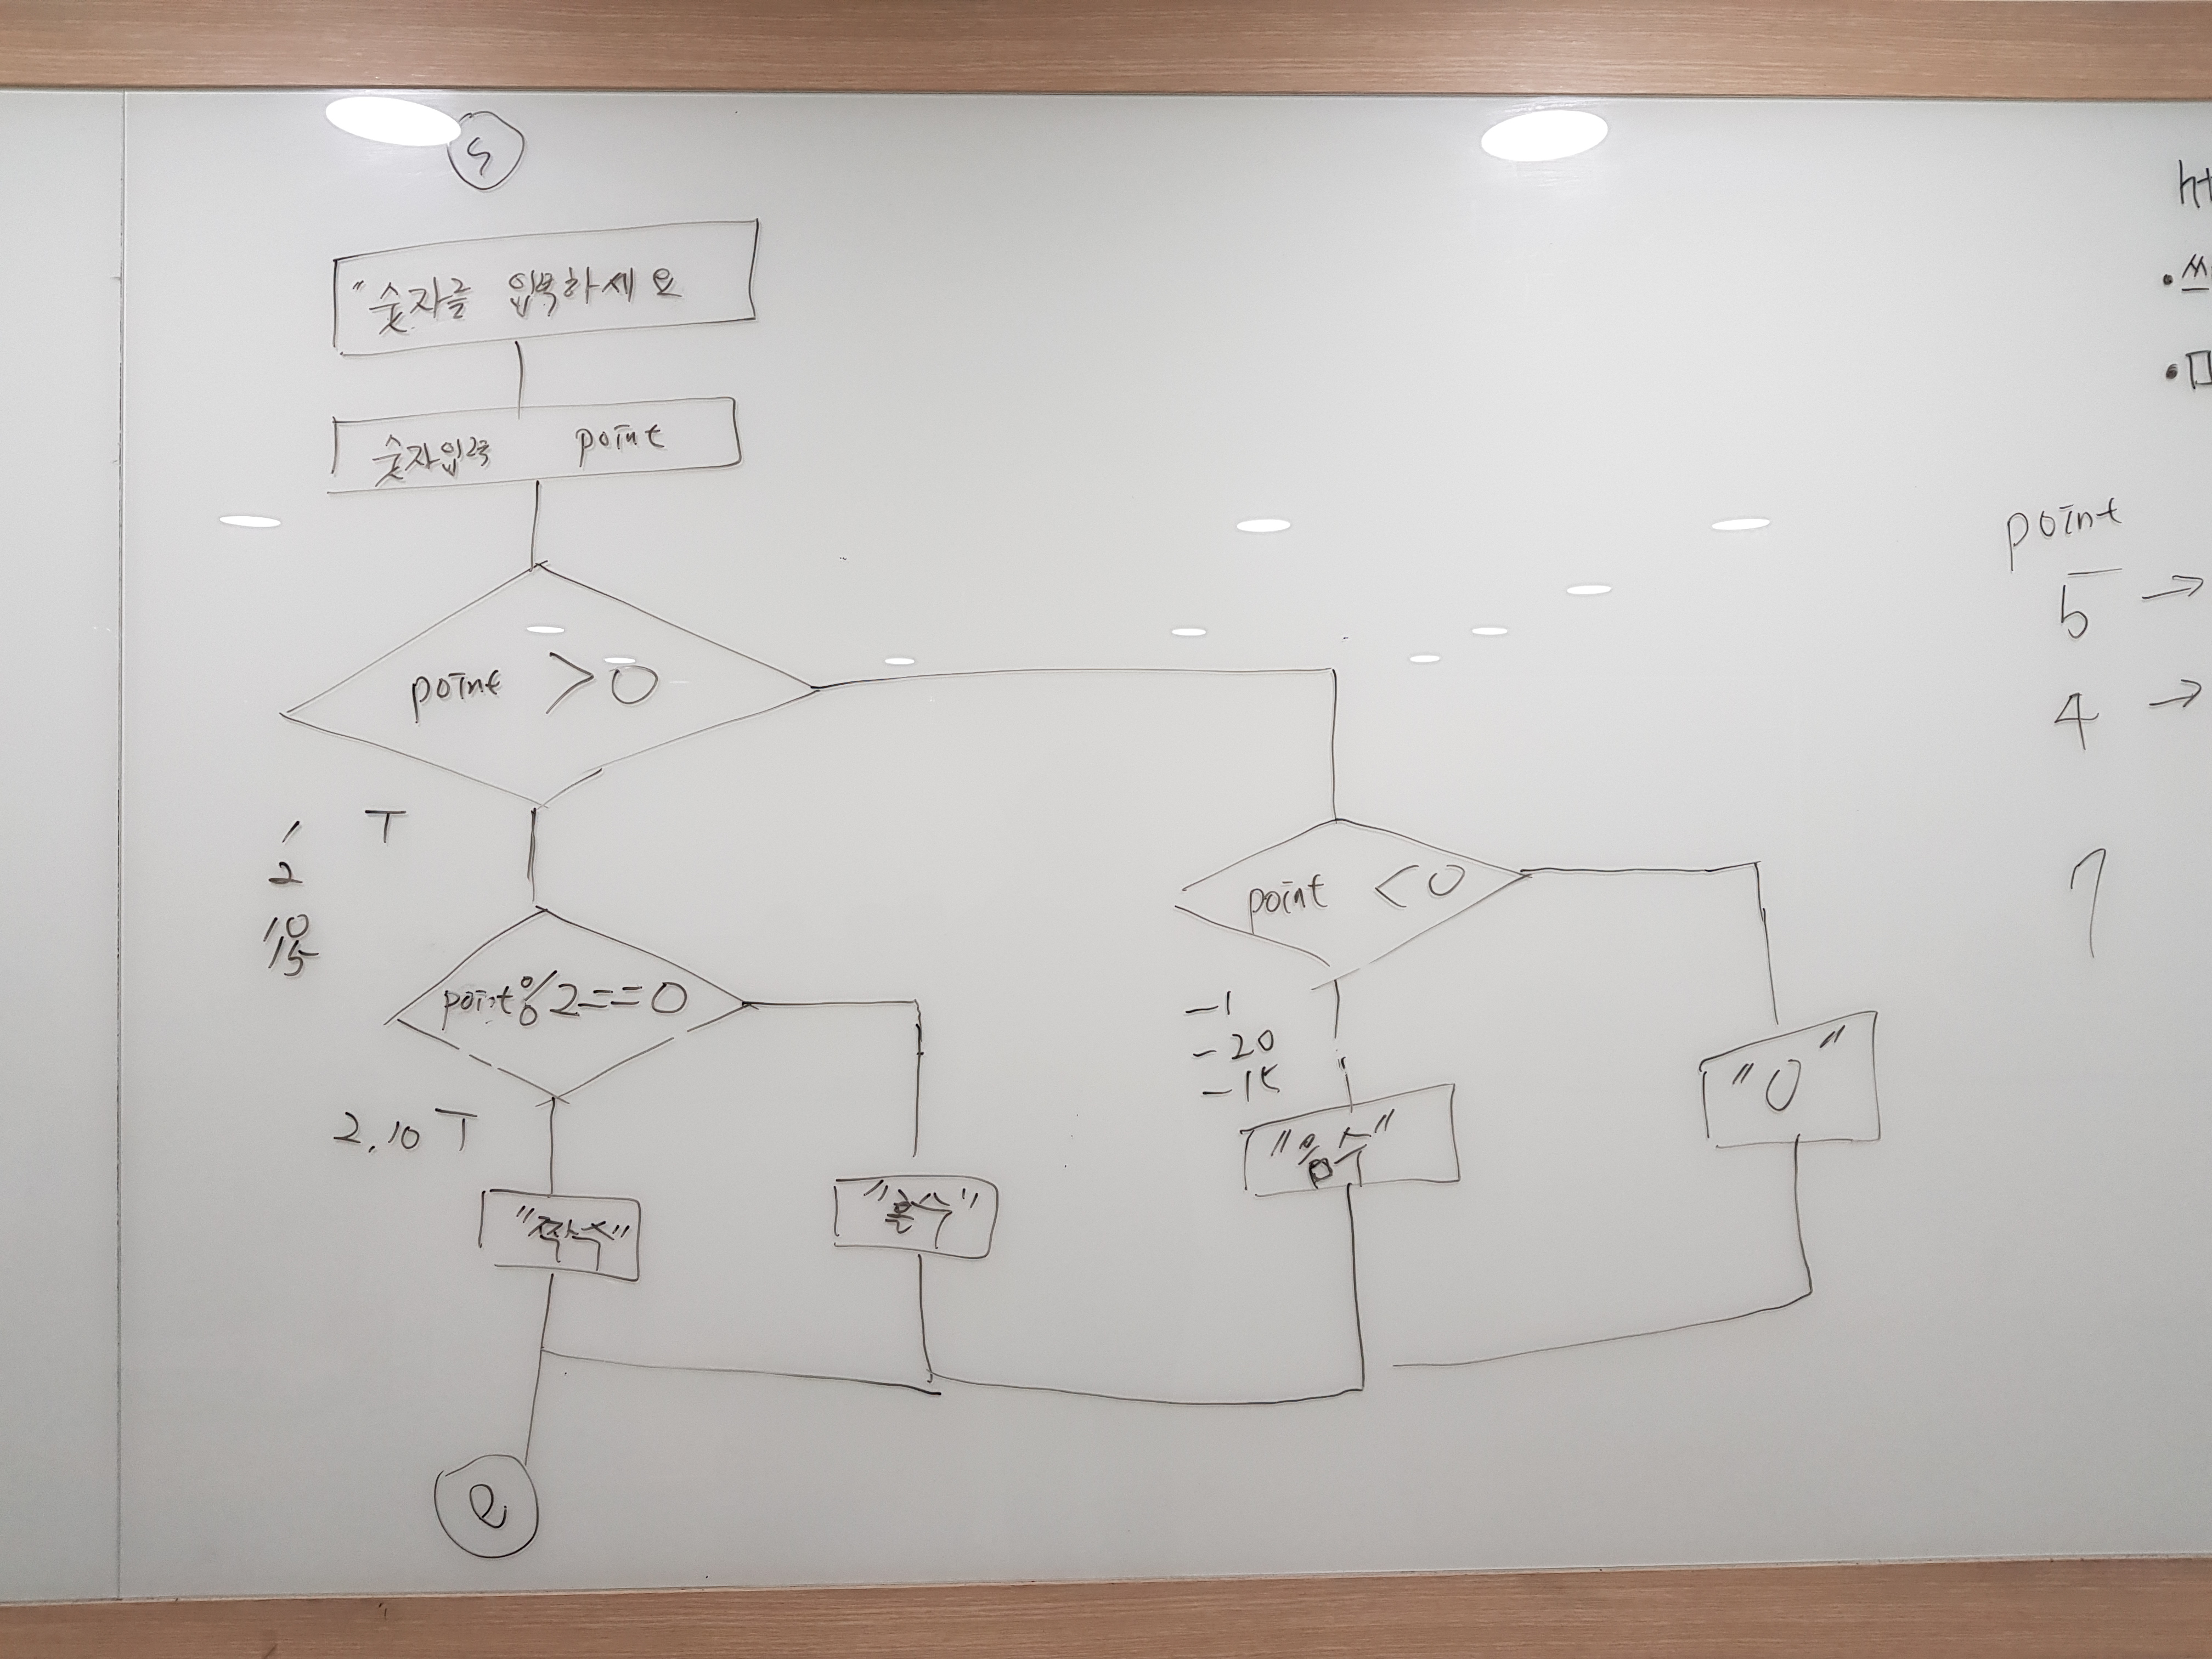 S
"숫자를 입력하세요
숫자입력 point
point > 0
T
1
2
10
15
point % 2 == 0
2, 10 T
"짝수"
"홀수"
point < 0
-1
-20
-15
"음수"
"0"
e
ht
•
•
point
5 →
4 →
7